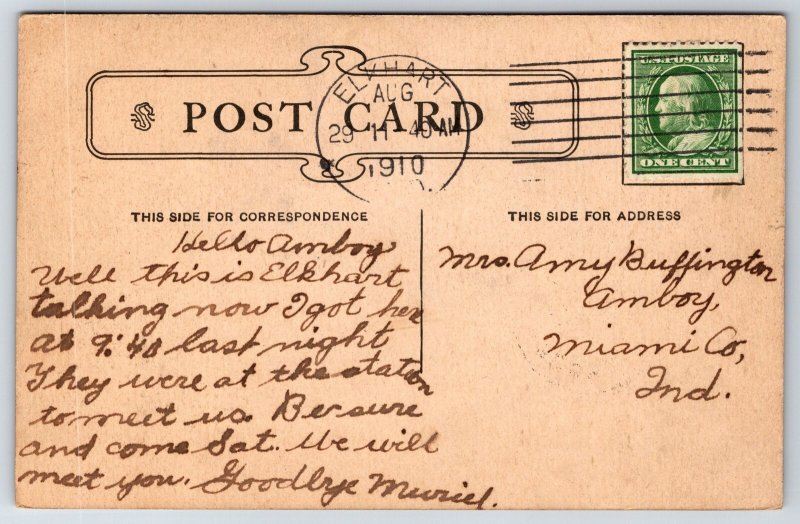 POST CARD
ELKHART
AUG
29 11 40 AM
1910
D.
U.S. POSTAGE
ONE CENT
THIS SIDE FOR CORRESPONDENCE
Hello Amboy
Well this is Elkhart
talking now I got here
at 9:40 last night
They were at the station
to meet us. Be sure
and come Sat. We will
meet you. Goodbye Muriel.
THIS SIDE FOR ADDRESS
Mrs. Amy Buffington
Amboy,
Miami Co,
Ind.